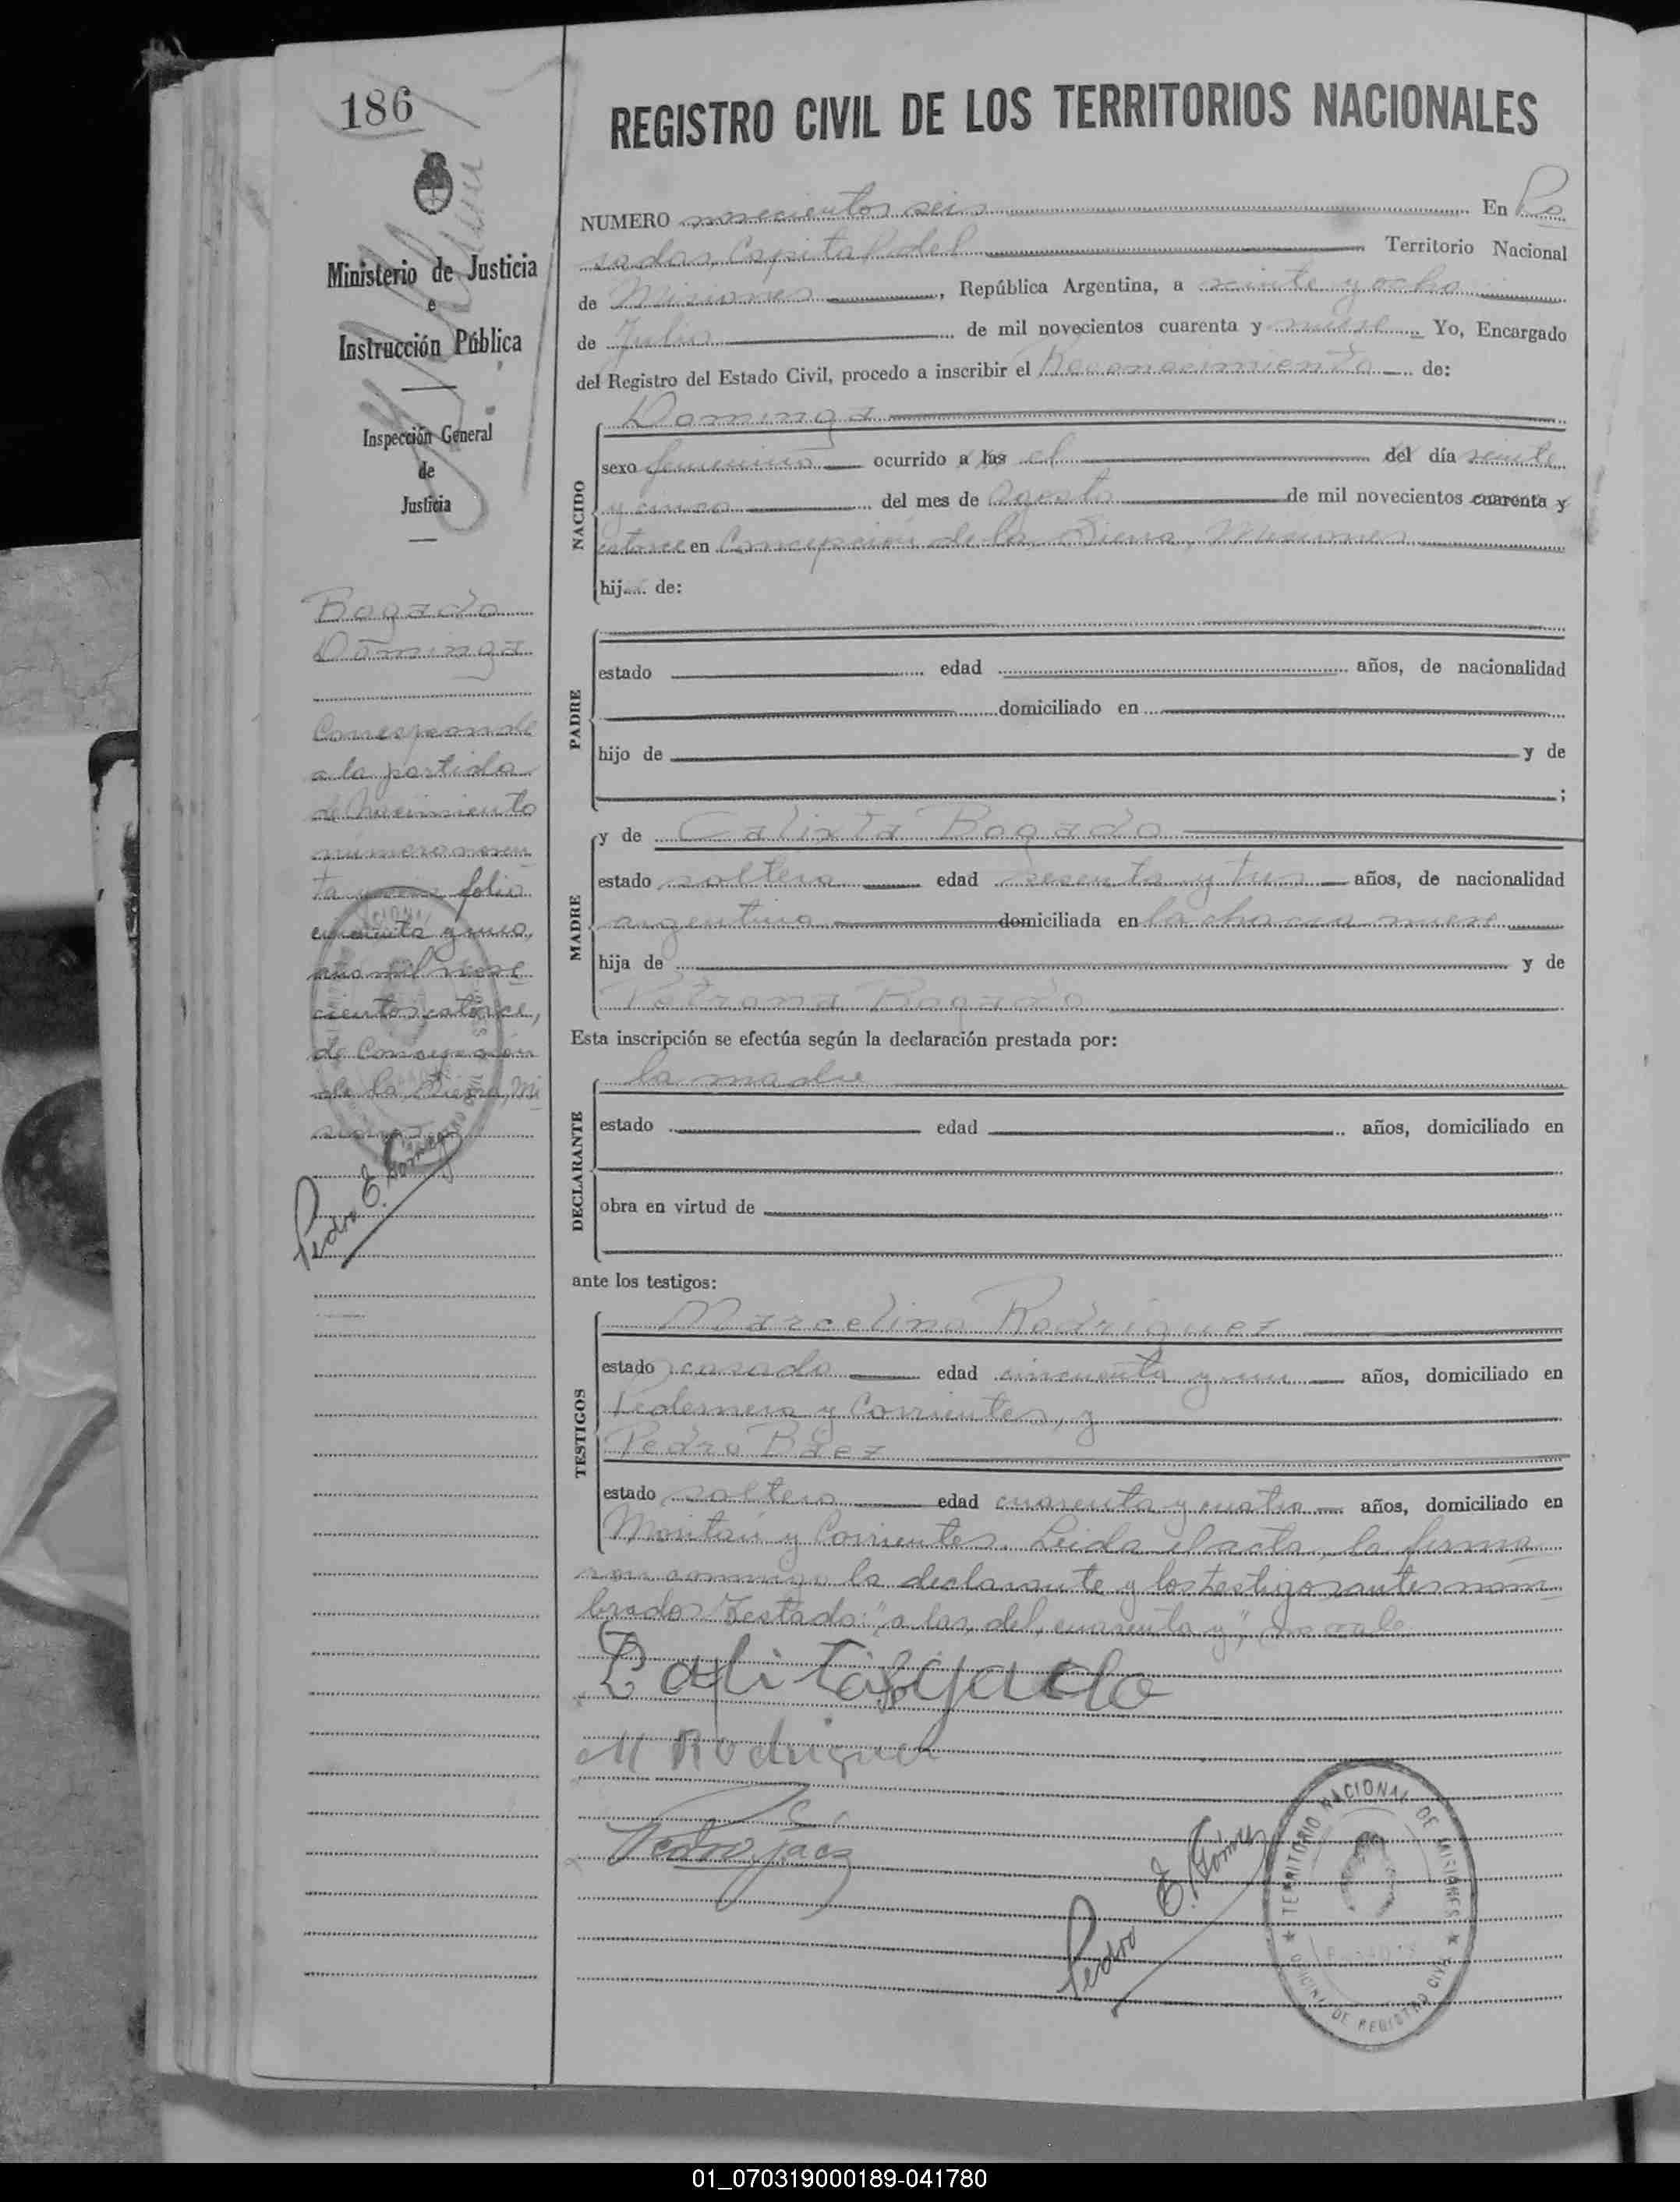 186
Ministerio de Justicia
e
Instrucción Pública
Inspección General
de
Justicia
Bogado
Dominga
Corresponde
a la partida
de Nacimiento
número noven
ta y folio
cincuenta y uno,
año mil nove
cientos catorce,
de Concepción
de la Sierra, Mi
siones
Pedro E. Gómez
REGISTRO CIVIL DE LOS TERRITORIOS NACIONALES
NUMERO novecientos seis En Po
sadas, Capital del Territorio Nacional
de Misiones, República Argentina, a veinte y ocho
de Julio de mil novecientos cuarenta y nueve Yo, Encargado
del Registro del Estado Civil, procedo a inscribir el Reconocimiento de:
NACIDO
Dominga
sexo femenino ocurrido a las el del día veinte
y cinco del mes de Agosto de mil novecientos cuarenta y
catorce en Concepción de la Sierra, Misiones
hij de:
PADRE
estado edad años, de nacionalidad
domiciliado en
hijo de y de
;
MADRE
y de Calixta Bogado
estado soltera edad sesenta y tres años, de nacionalidad
argentina domiciliada en la chacra nueve
hija de y de
Petrona Bogado
Esta inscripción se efectúa según la declaración prestada por:
DECLARANTE
la madre
estado edad años, domiciliado en
obra en virtud de
ante los testigos:
TESTIGOS
Marcelino Rodriguez
estado casado edad cincuenta y un años, domiciliado en
Pedernera y Corrientes, y
Pedro Báez
estado soltero edad cuarenta y cuatro años, domiciliado en
y Corrientes. Leida el acta, la firma
ron conmigo la declarante y los testigos antes nom
brados. Testado: "a las, del, cuarenta y", no vale
M Rodriguez
Pedro Baez
Pedro E. Gómez
TERRITORIO NACIONAL DE MISIONES
OFICINA DE REGISTRO CIVIL
01_070319000189-041780